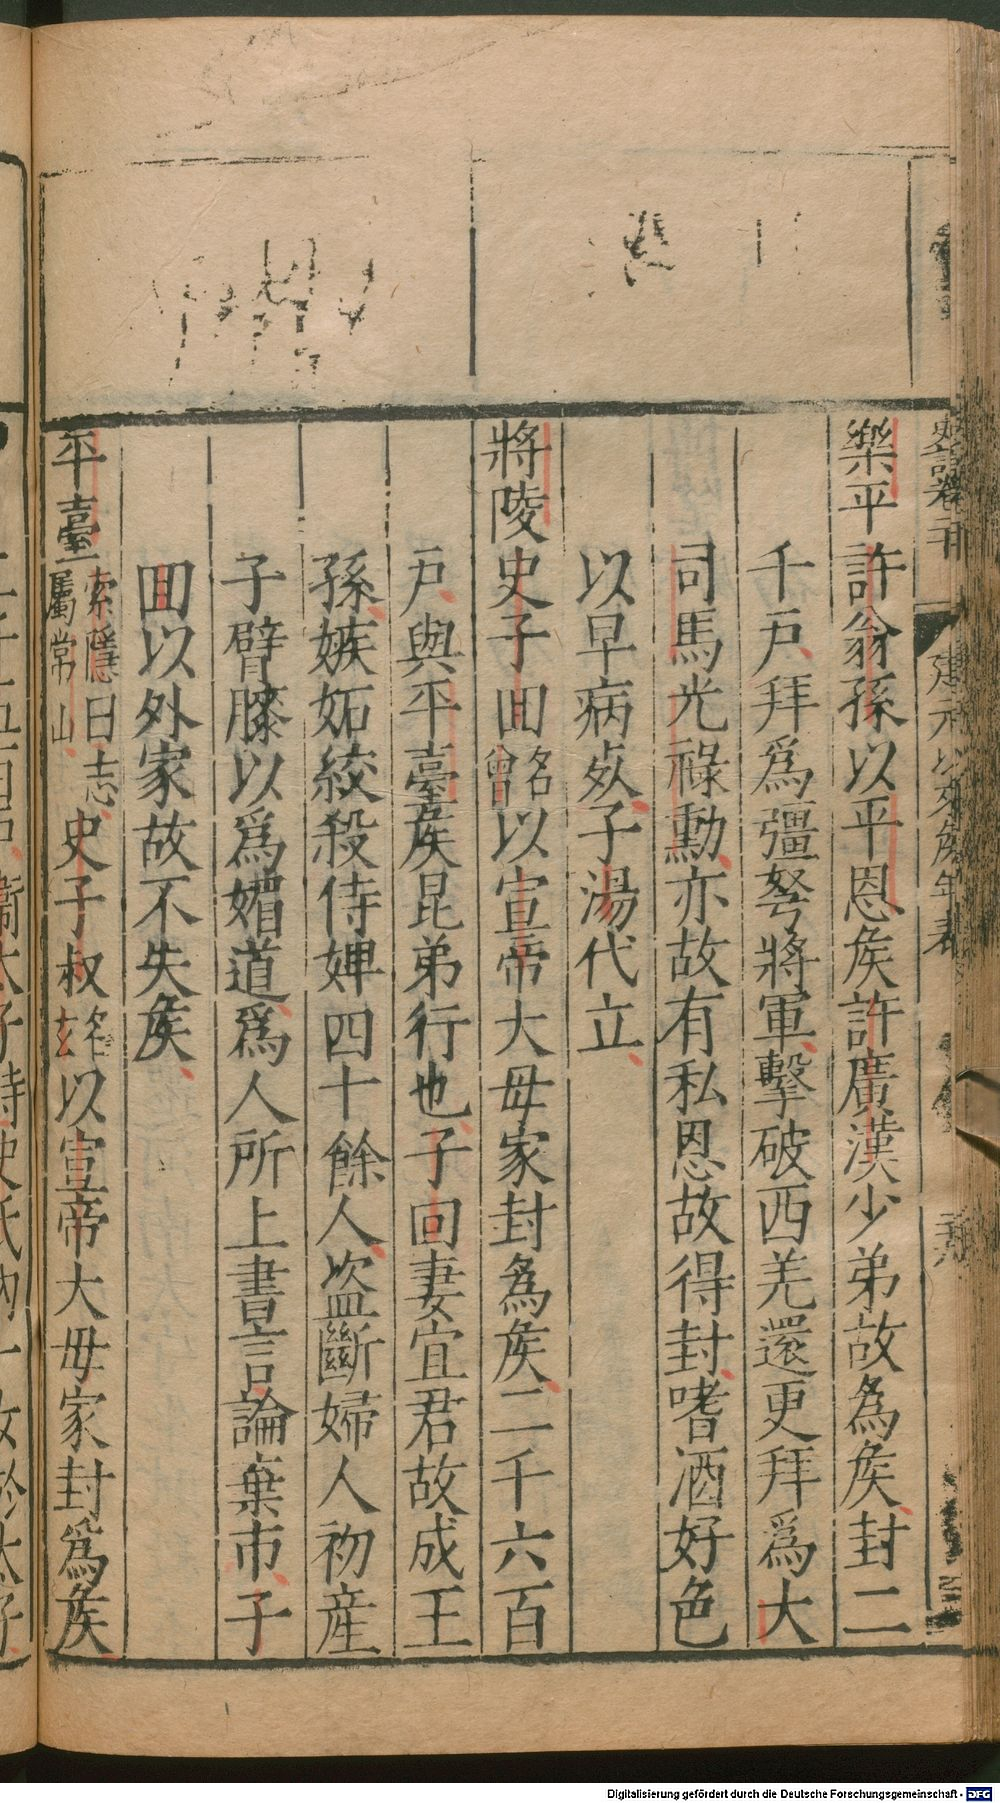 樂平許翁孫以平恩矦許廣漢少弟故為矦封二
千戶拜爲彊弩將軍擊破西羌還更拜爲大
司馬光祿勳亦故有私恩故得封嗜酒好色
以早病死子湯代立
將陵史子回名曾以宣帝大母家封為矦二千六百
戶與平臺矦昆弟行也子回妻宜君故成王
孫嫉妬絞殺侍婢四十餘人盜斷婦人初産
子臂膝以爲媚道爲人所上書言論棄市子
回以外家故不失矦
平臺索隱曰志屬常山史子叔名玄以宣帝大母家封爲矦
史記卷二十
建元以來矦年表
Digitalisierung gefördert durch die Deutsche Forschungsgemeinschaft - DFG